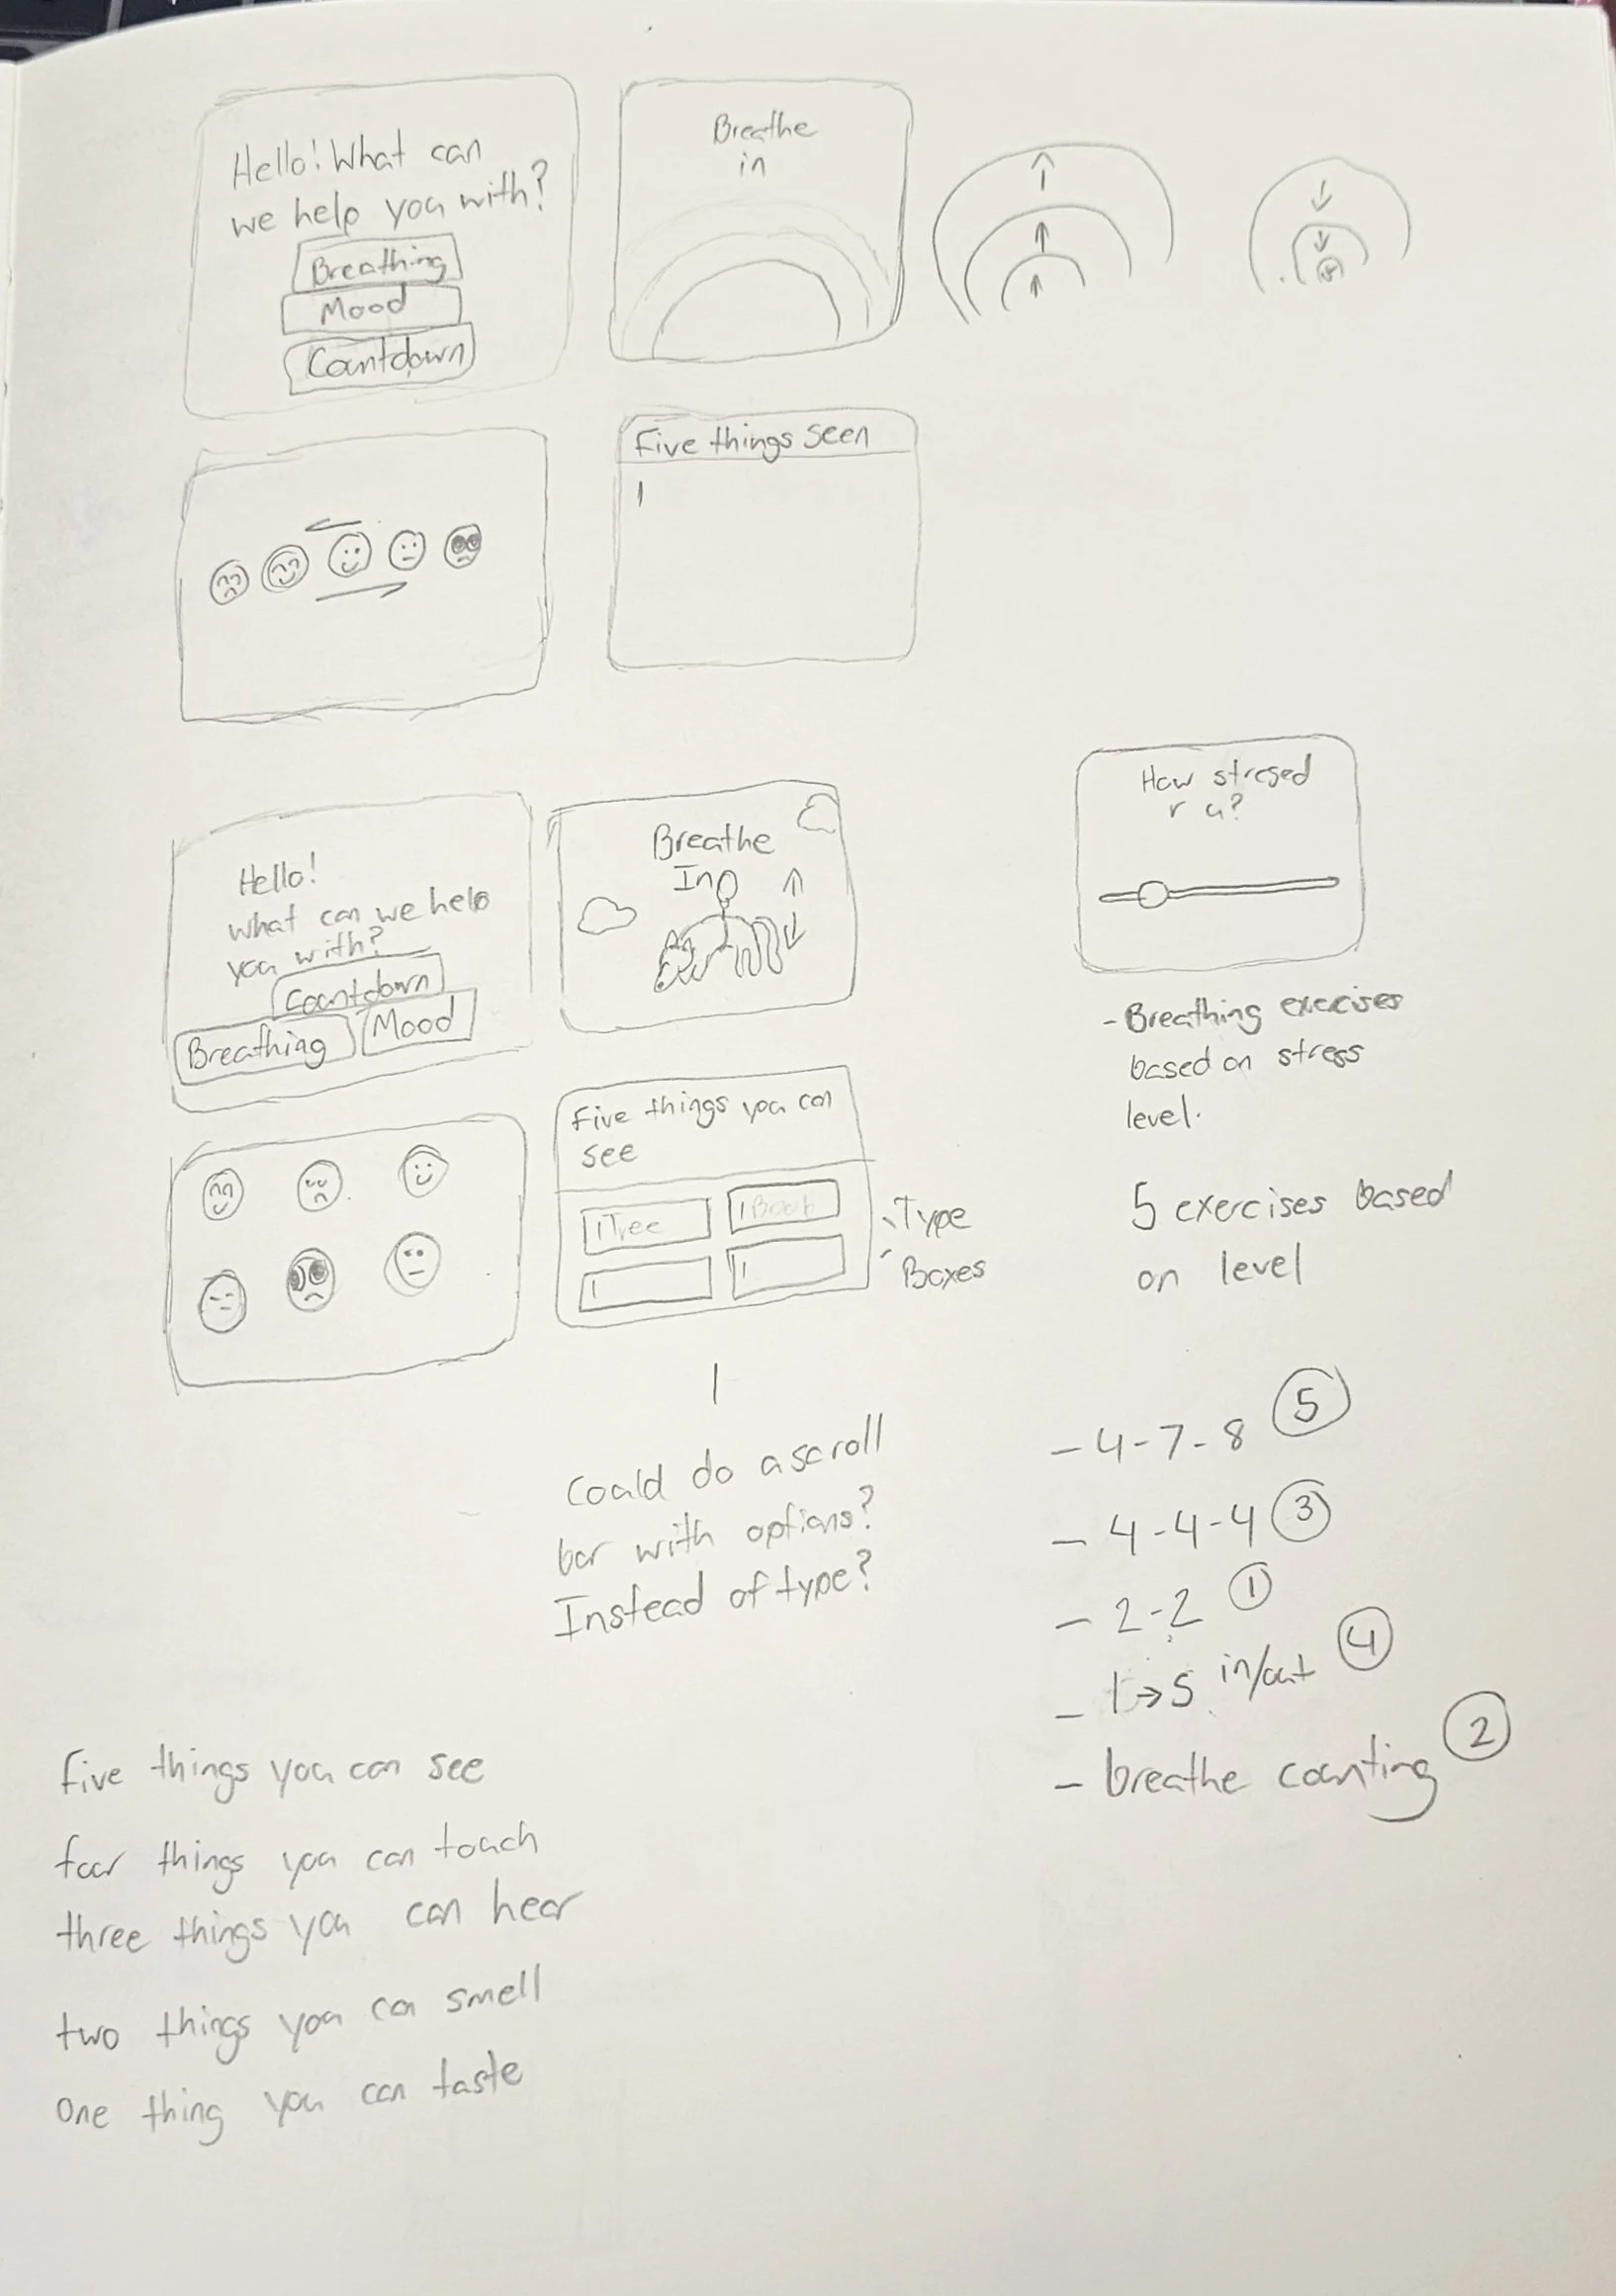 Hello! What can
we help you with?
Breathing
Mood
Countdown
Breathe
in
Five things seen
1
Hello!
what can we help
you with?
Countdown
Breathing
Mood
Breathe
In
How stresed
r u?
- Breathing exercises
based on stress
level.
Five things you can
see
1 Tree
1
1
1
Type
Boxes
5 exercises based
on level
Could do a scroll
bar with options?
Instead of type?
- 4-7-8 ⑤
- 4-4-4 ③
- 2-2 ①
- 1→5 in/out ④
- breathe counting ②
five things you can see
four things you can touch
three things you can hear
two things you can smell
one thing you can taste